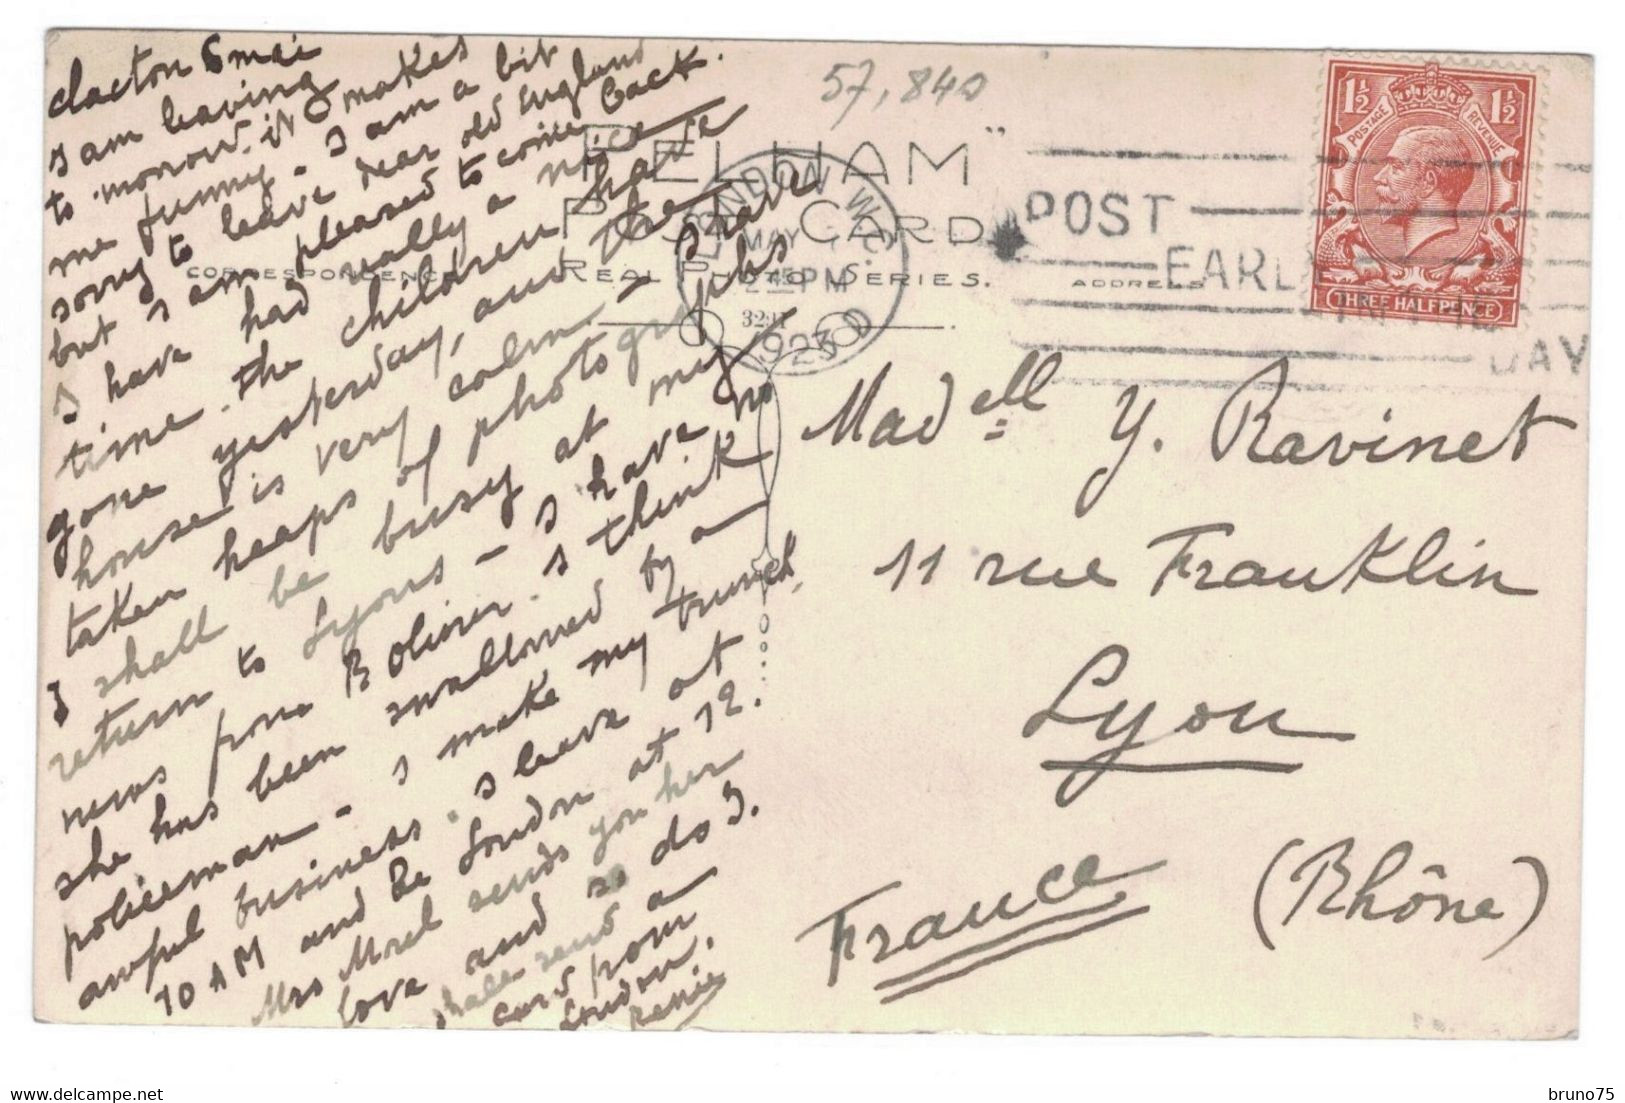 clacton 6 mai
I am leaving
to morrow. it makes
me funny. I am a bit
sorry to leave dear old England
but I am pleased to come back.
I have had really a nice
time. The children have
gone yesterday, and the
house is very calm - I have
taken heaps of photographs
I shall be busy at my
return to Lyons - I have no
news from R Olivier. I think
she has been swallowed by a
policeman - I make my trunck,
awful business. I leave at
10 AM and be London at 12.
Mrs sends you her
love and so do I.
shall send a
card from
London.
Renée
57,840
"PELHAM"
POST CARD
CORRESPONDENCE
REAL PHOTO SERIES.
ADDRESS
LONDON W.C.
MAY
PM
1923
D
POST
EARLY
IN THE
DAY
1½ 1½
POSTAGE REVENUE
THREE HALFPENCE
Madell Y. Ravinet
11 rue Franklin
Lyon
France (Rhône)
bruno75